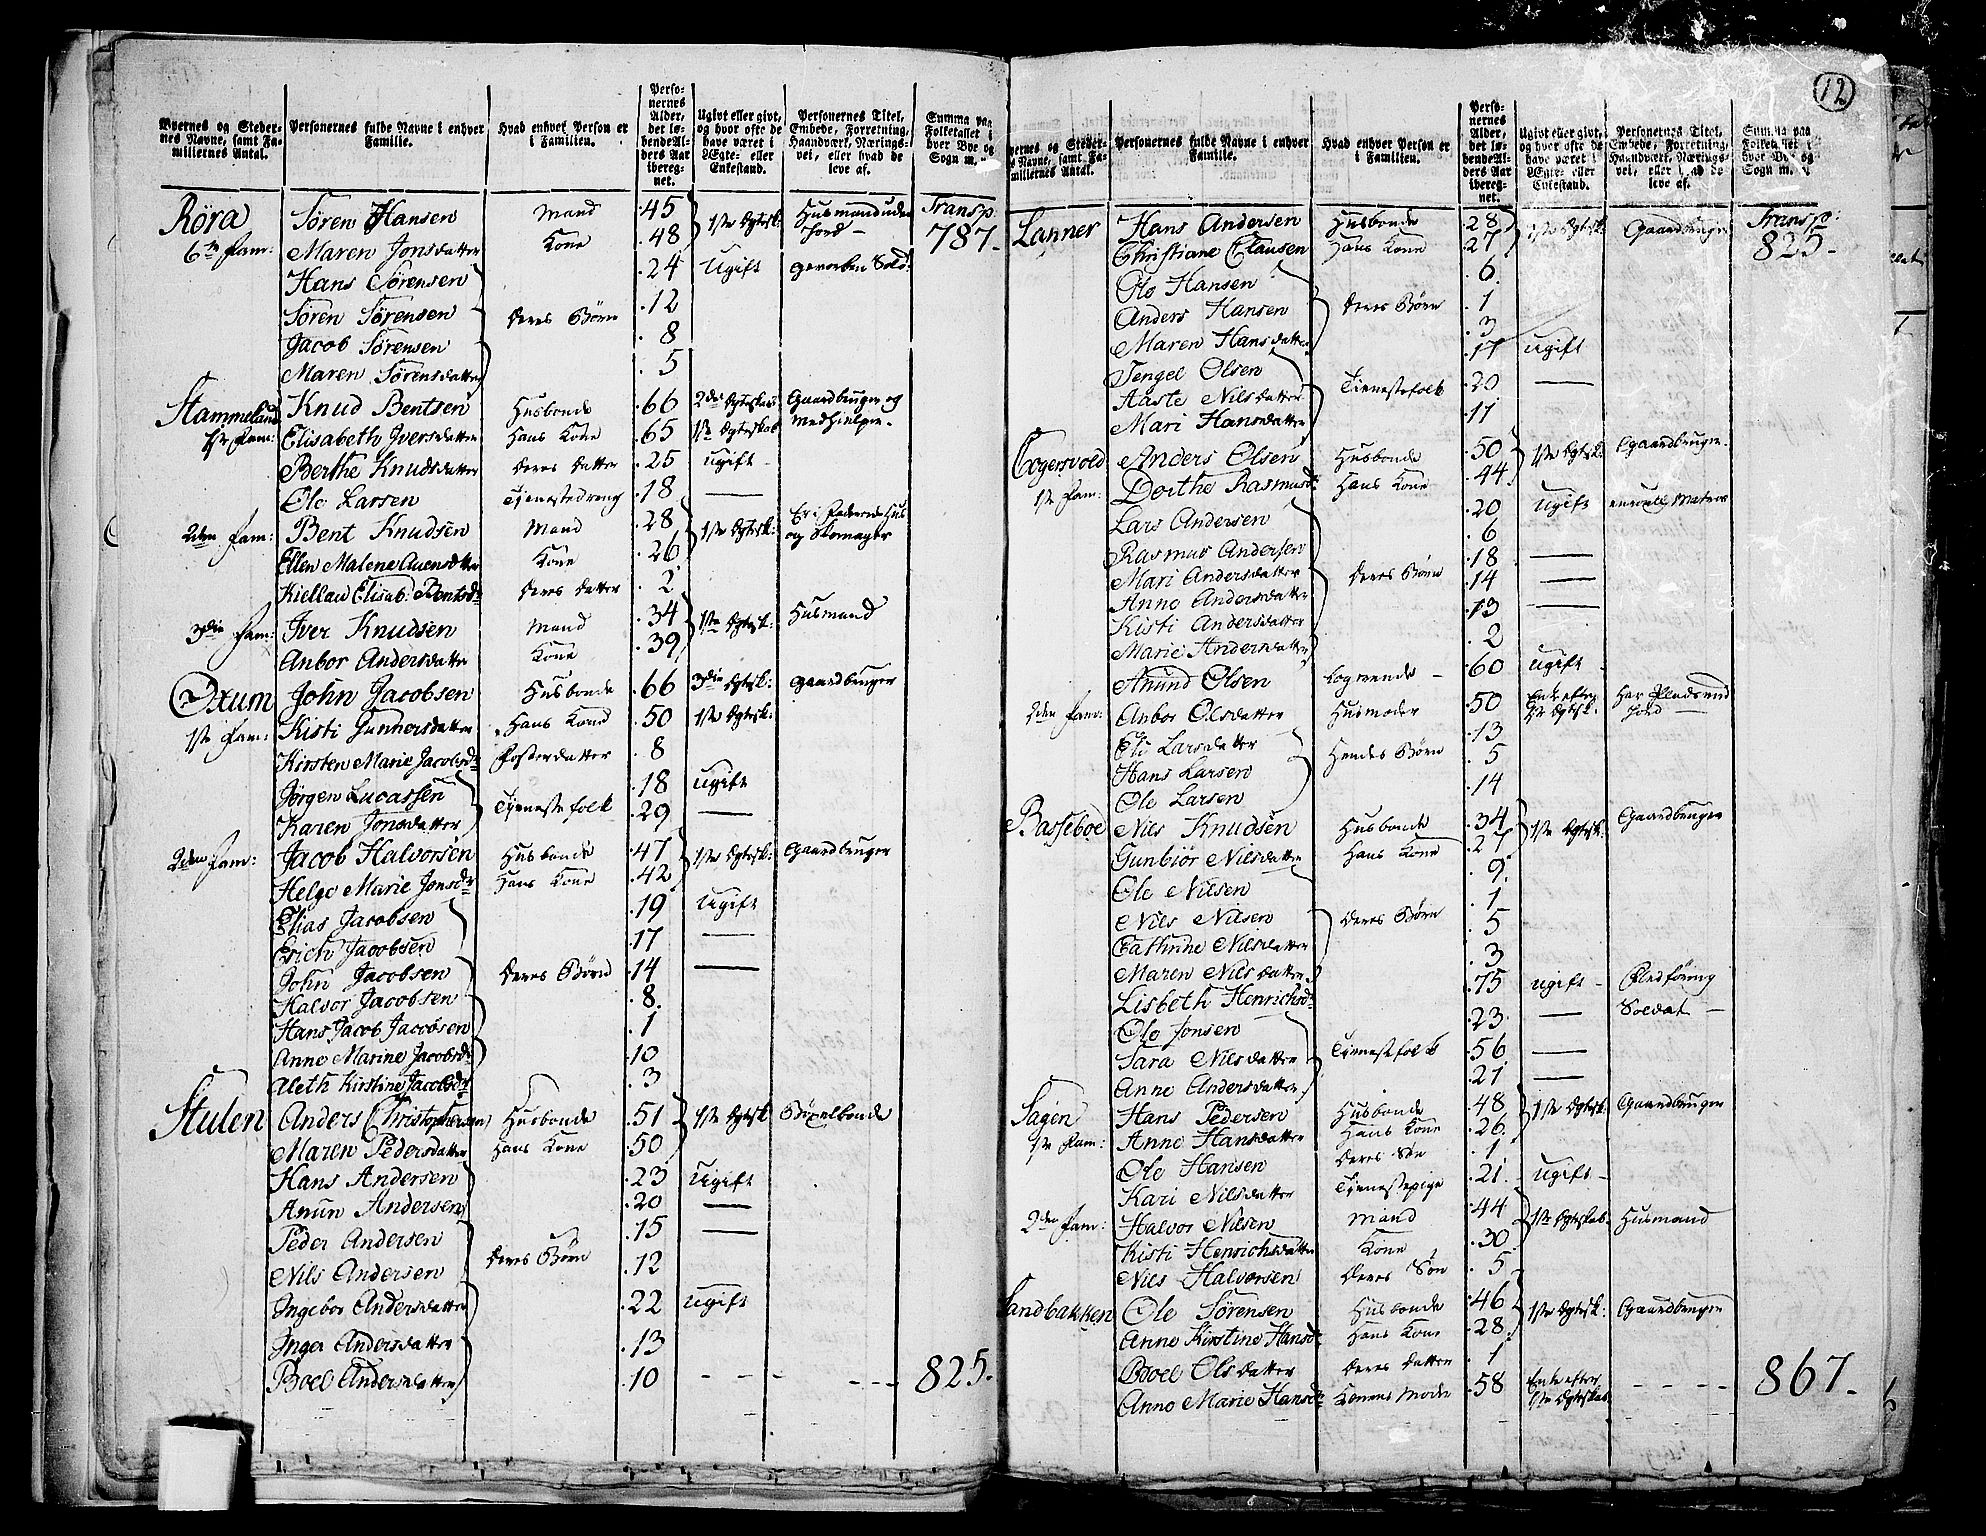 12
Byernes og Stedernes Navne, samt Familliernes Antal. Personernes fulde Navne i enhver Familie. Hvad enhver Person er i Familien. Personernes Alder, det løbende Alders Aar iberegnet. Ugivt eller givt, og hvor ofte de have været i Ægte- eller Enkestand. Personernes Titel, Embede, Forretning, Haandværk, Næringsvei, eller hvad de leve af. Summa paa Folketallet i hver Bye og Sogn
Röra Sören Hansen Mand 45 1ste Egtesk: Husmand uden Jord Transp: 787
6te Fam: Maren Jonsdatter Kone 48
Hans Sörensen 24 Ugift geworben Sold:
Sören Sörensen Deres Börn 12
Jacob Sörensen 8
Maren Sörensdatter 5
Stammeland Knud Bentsen Husbonde 66 2den Egteskab Gaardbruger og Medhielper
1ste Fam: Elisabeth Iversdatter Hans Kone 65 1ste Egteskab
Berthe Knudsdatter Deres Datter 25 Ugift
Ole Larsen Tjenestedreng 18 —
2den Fam: Bent Knudsen Mand 28 1ste Egtesk: og Skomager
Ellen Malena Auensdatter Kone 26
Kiellau Elisab: Bentsdr Deres Datter 2
3die Fam: Iver Knudsen Mand 34 1ste Egtesk: Husmand
Anbor Andersdatter Kone 39
Oxum John Jacobsen Husbonde 66 3die Egtesk: Gaardbruger
1ste Fam: Kisti Gunnersdatter Hans Kone 50 1ste Egtesk:
Kirsten Marie Jacobsdr Fosterdatter 8
Jörgen Lucassen Tjenestefolk 18 Ugift
Karen Jonsdatter 29 —
2den Fam: Jacob Halvorsen Husbonde 47 1ste Egtesk: Gaardbruger
Helge Marie Jonsdr Hans Kone 42
Elias Jacobsen 19 Ugift
Erich Jacobsen 17 —
John Jacobsen Deres Börn 14 —
Halvor Jacobsen 8
Hans Jacob Jacobsen 1
Anne Marine Jacobsdr 10
Aleth Kirstine Jacobsdr 3
Stulen Anders Christophersen Husbonde 51 1ste Egtesk
Maren Pedersdatter Hans Kone 50
Hans Andersen 23 Ugift
Anun Andersen 20 —
Peder Andersen 15 —
Nils Andersen Deres Börn 12
Ingebor Andersdatter 22 Ugift
Inger Andersdatter 13
Boel Andersdatter 10 - - - 825.
Byernes og Stedernes Navne, samt Familliernes Antal. Personernes fulde Navne i enhver Familie. Hvad enhver Person er i Familien. Personernes Alder, det løbende Alders Aar iberegnet. Ugivt eller givt, og hvor ofte de have været i Ægte- eller Enkestand. Personernes Titel, Embede, Forretning, Haandværk, Næringsvei, eller hvad de leve af. Summa paa Folketallet i hver Bye og Sogn
Lanner Hans Andersen Husbonde 28 1ste Egtesk: Gaardbruger Transp: 825
Christiane Clausen Hans Kone 27
Ole Hansen 6
Anders Hansen Deres Börn 1
Maren Hansdatter 3
Tengel Olsen 17 Ugift
Aaste Nilsdatter Tienestefolk 20 —
Mari Hansdatter 11
Togersvold Anders Olsen Husbonde 50 1ste Egtesk: Gaardbruger
1ste Fam: Dorthe Rasmusdr Hans Kone 44
Lars Andersen 20 Ugift enroull: Matros
Rasmus Andersen 6
Mari Andersdatter Deres Börn 18 —
Anne Andersdatter 14 —
Kisti Andersdatter 13 —
Marie Andersdatter 2
Anund Olsen Logerende 60 Ugift
2den Fam: Anbor Olsdatter Husmoder 50 Enke efter 1ste Egtesk. Har Pladsmed Jord
Eli Larsdatter 13
Hans Larsen Hendes Börn 5
Ole Larsen 14
Basseboe Nils Knudsen Husbonde 34 1ste Egtesk: Gaardbruger
Gunbiör Nilsdatter Hans Kone 27
Ole Nilsen 9
Nils Nilsen Deres Börn 1
Cathrine Nilsdatter 5
Maren Nilsdatter 3
Lisbeth Henrichsdr 75 Ugift
Ole Jonsen 23 — Soldat
Sara Nilsdatter Tjenestefolk 56 —
Anne Andersdatter 21 —
Sagen Hans Pedersen Husbonde 48 1ste Egtesk: Gaardbruger
1ste Fam: Anne Hansdatter Hans Kone 26
Ole Hansen Deres Sön 1
Kari Nilsdatter Tjenestepige 21 Ugift
2den Fam: Halvor Nilsen Mand 44 1ste Egteskab Husmand
Kisti Henrichsdatter Kone 30
Nils Halvorsen Deres Sön 5
Sandbakken Ole Sörensen Husbonde 46 1ste Egtesk: Gaardbruger
Anne Kirstine Hansdr Hans Kone 28
Boel Olsdatter Deres Datter 1
Anne Marie Hansdr Konens Moder 58 Enke efter 1ste Egteskab - - - - 867.